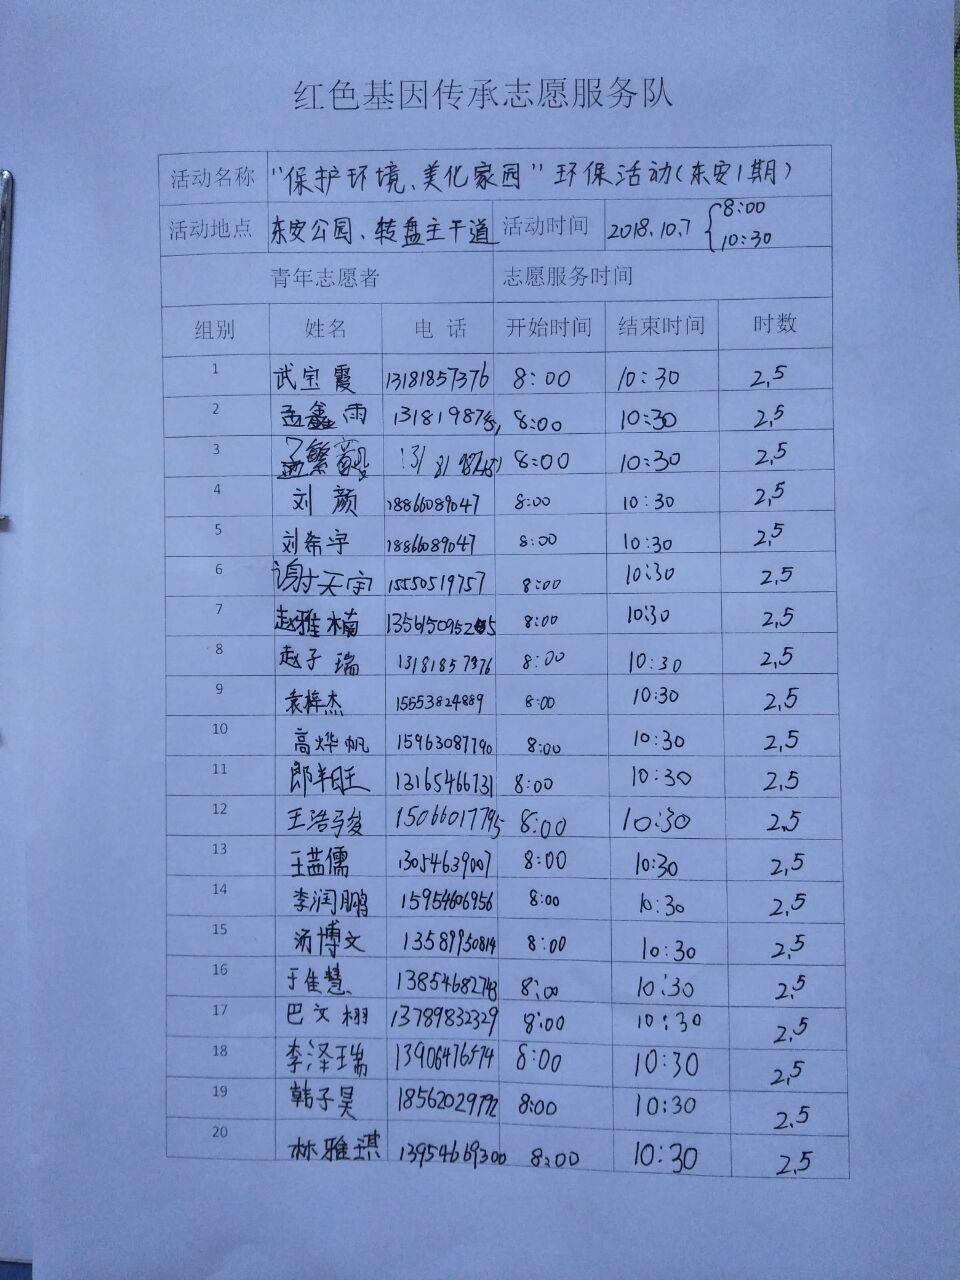 红色基因传承志愿服务队
活动名称 "保护环境、美化家园"环保活动(东安1期)
活动地点 东安公园、转盘主干道 活动时间 2018.10.7 8:00 10:30
青年志愿者 志愿服务时间
组别 姓名 电 话 开始时间 结束时间 时数
1 武宝霞 13181857376 8:00 10:30 2.5
2 孟鑫雨 8:00 10:30 2.5
3 孟繁 8:00 10:30 2.5
4 刘颜 18866089047 8:00 10:30 2.5
5 刘希宇 18866089047 8:00 10:30 2.5
6 谢天宇 15550519757 8:00 10:30 2.5
7 赵雅楠 8:00 10:30 2.5
8 赵子瑞 13181857376 8:00 10:30 2.5
9 袁梓杰 15553824889 8:00 10:30 2.5
10 高烨帆 15963087790 8:00 10:30 2.5
11 13165466731 8:00 10:30 2.5
12 15066017795 8:00 10:30 2.5
13 王茜儒 13054639007 8:00 10:30 2.5
14 李润鹏 15954606956 8:00 10:30 2.5
15 汤博文 13589950814 8:00 10:30 2.5
16 于佳慧 13854682743 8:00 10:30 2.5
17 巴文栩 13789832329 8:00 10:30 2.5
18 李泽瑞 13906476574 8:00 10:30 2.5
19 韩子昊 18562029792 8:00 10:30 2.5
20 林雅琪 13954669300 8:00 10:30 2.5